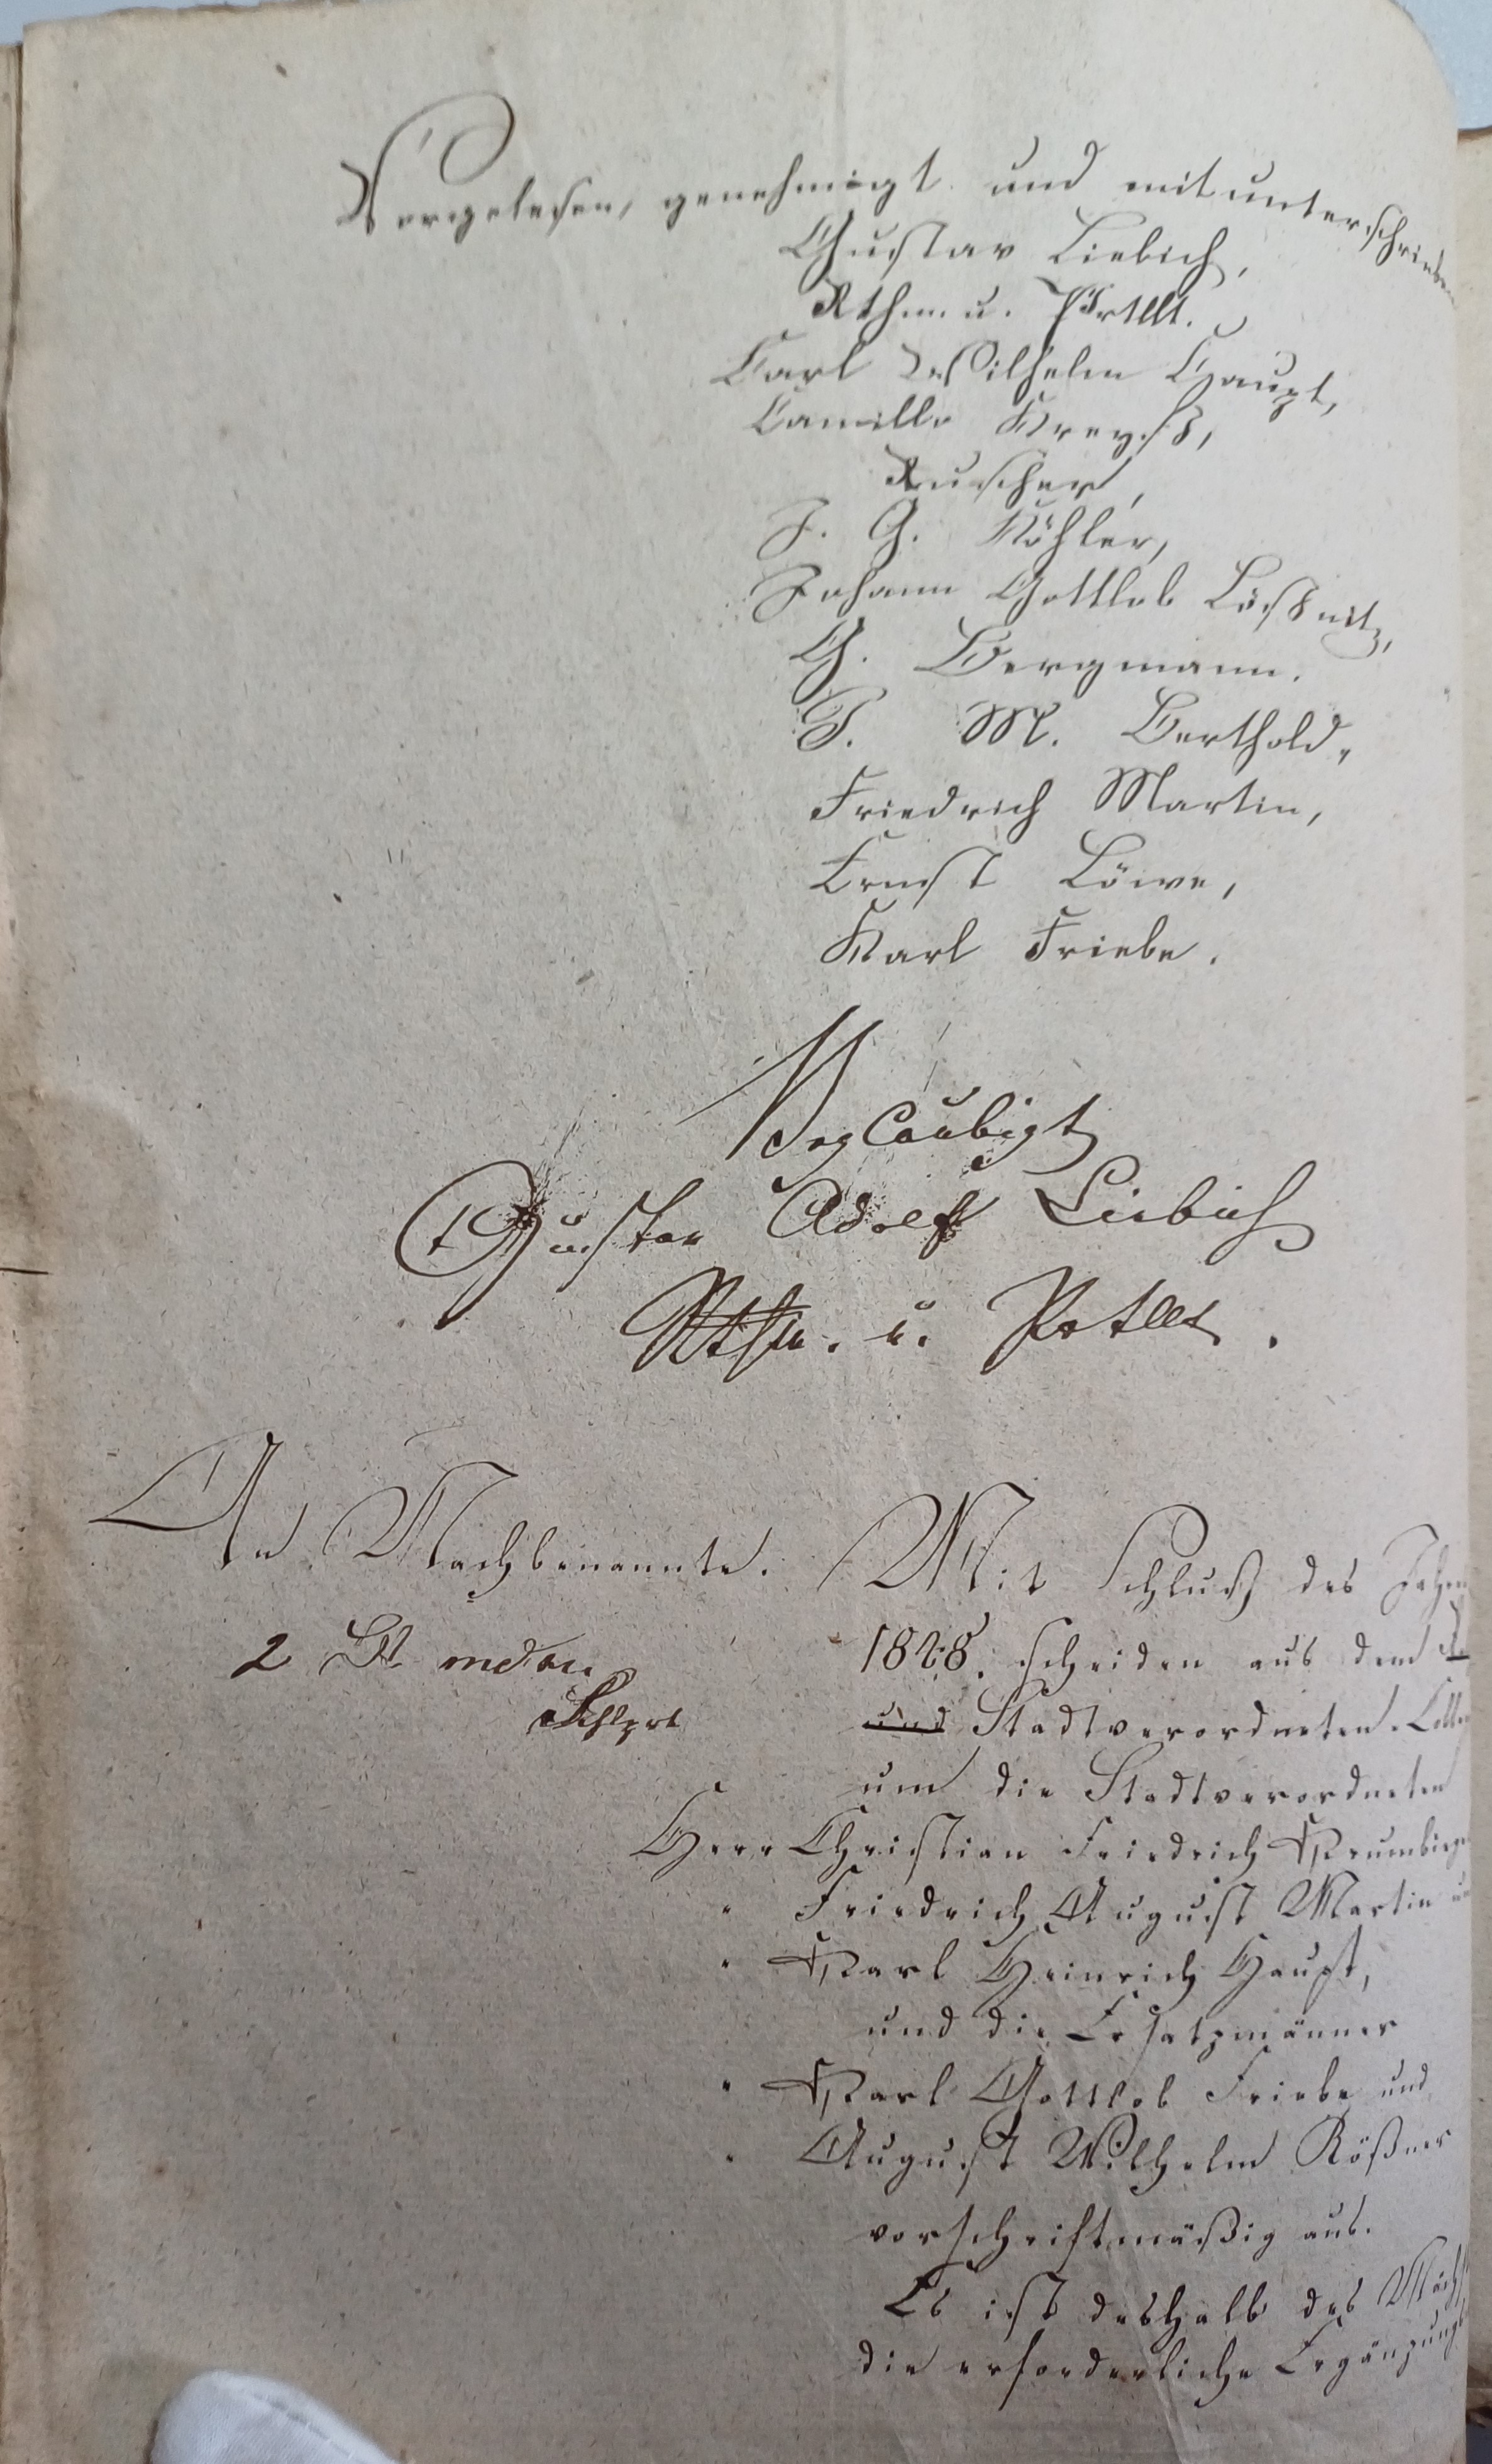 Vorgelesen, genehmigt und mitunterschrieben
Gustav Liebich,
Rthm. u. Prtllt.
Carl Wilhelm Haupt,
Camillo Kreyß,
Ruscher,
J. G. Köhler,
Johann Gottlob Lößnitz,
G. Bergmann.
F. M. Berthold,
Friedrich Martin,
Ernst Löwe,
Karl Friebe.
Beglaubigt
Gustav Adolf Liebich
Rthm. u. Prtllt.
An Nachbenannte.
2
Mit Schluß des
1848. scheiden aus dem
und Stadtverordneten-
um die Stadtverordneten
Herr Christian Friedrich
" Friedrich August Martin
" Karl Heinrich Haupt,
und die Ersatzmänner
" Karl Gottlob Friebe und
" August Wilhelm Rößner
vorschriftmäßig aus.
Es ist deshalb des
die erforderliche